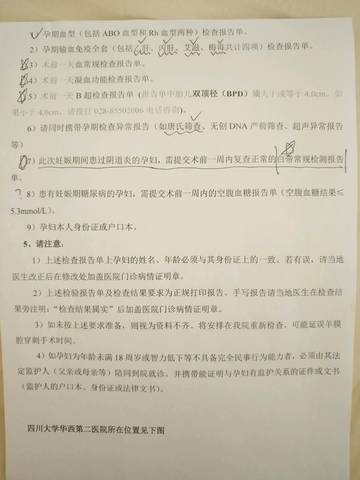 1）孕期血型（包括 ABO 血型和 Rh 血型两种）检查报告单。
2）孕期输血免疫全套（包括乙肝、丙肝、艾滋、梅毒共计四项）检查报告单。
3）术前一天血常规检查报告单。
4）术前一天凝血功能检查报告单。
5）术前一天 B 超检查报告单（报告单中胎儿双顶径（BPD）须大于或等于 4.0cm，如
果小于 4.0cm，请拨打 028-85502006 电话咨询）。
6）请同时携带孕期检查异常报告（如唐氏筛查、无创 DNA 产前筛查、超声异常报告
等）
7）此次妊娠期间患过阴道炎的孕妇，需提交术前一周内复查正常的白带常规检测报告
单。
? 8）患有妊娠期糖尿病的孕妇，需提交术前一周内的空腹血糖报告单（空腹血糖结果≤
5.3mmol/L）。
9）孕妇本人身份证或户口本。
5、请注意：
1）上述检查报告单上孕妇的姓名、年龄必须与其身份证上的一致。若有误，请当地
医生改正后在修改处加盖医院门诊病情证明章。
2）上述检验报告单及检查结果要求为正规打印报告。手写报告请当地医生在检查结
果旁注明：“检查结果属实”后加盖医院门诊病情证明章。
3）如未按上述要求准备，则视为资料不齐，将安排在我院重新检查，可能延误羊膜
腔穿刺手术时间。
4）如孕妇为年龄未满 18 周岁或智力低下等不具备完全民事行为能力者，必须由其法
定监护人（父亲或母亲等）陪同到院就诊，并携带能证明与孕妇有监护关系的证件或文书
（监护人的户口本、身份证或法律文书）。
四川大学华西第二医院所在位置见下图